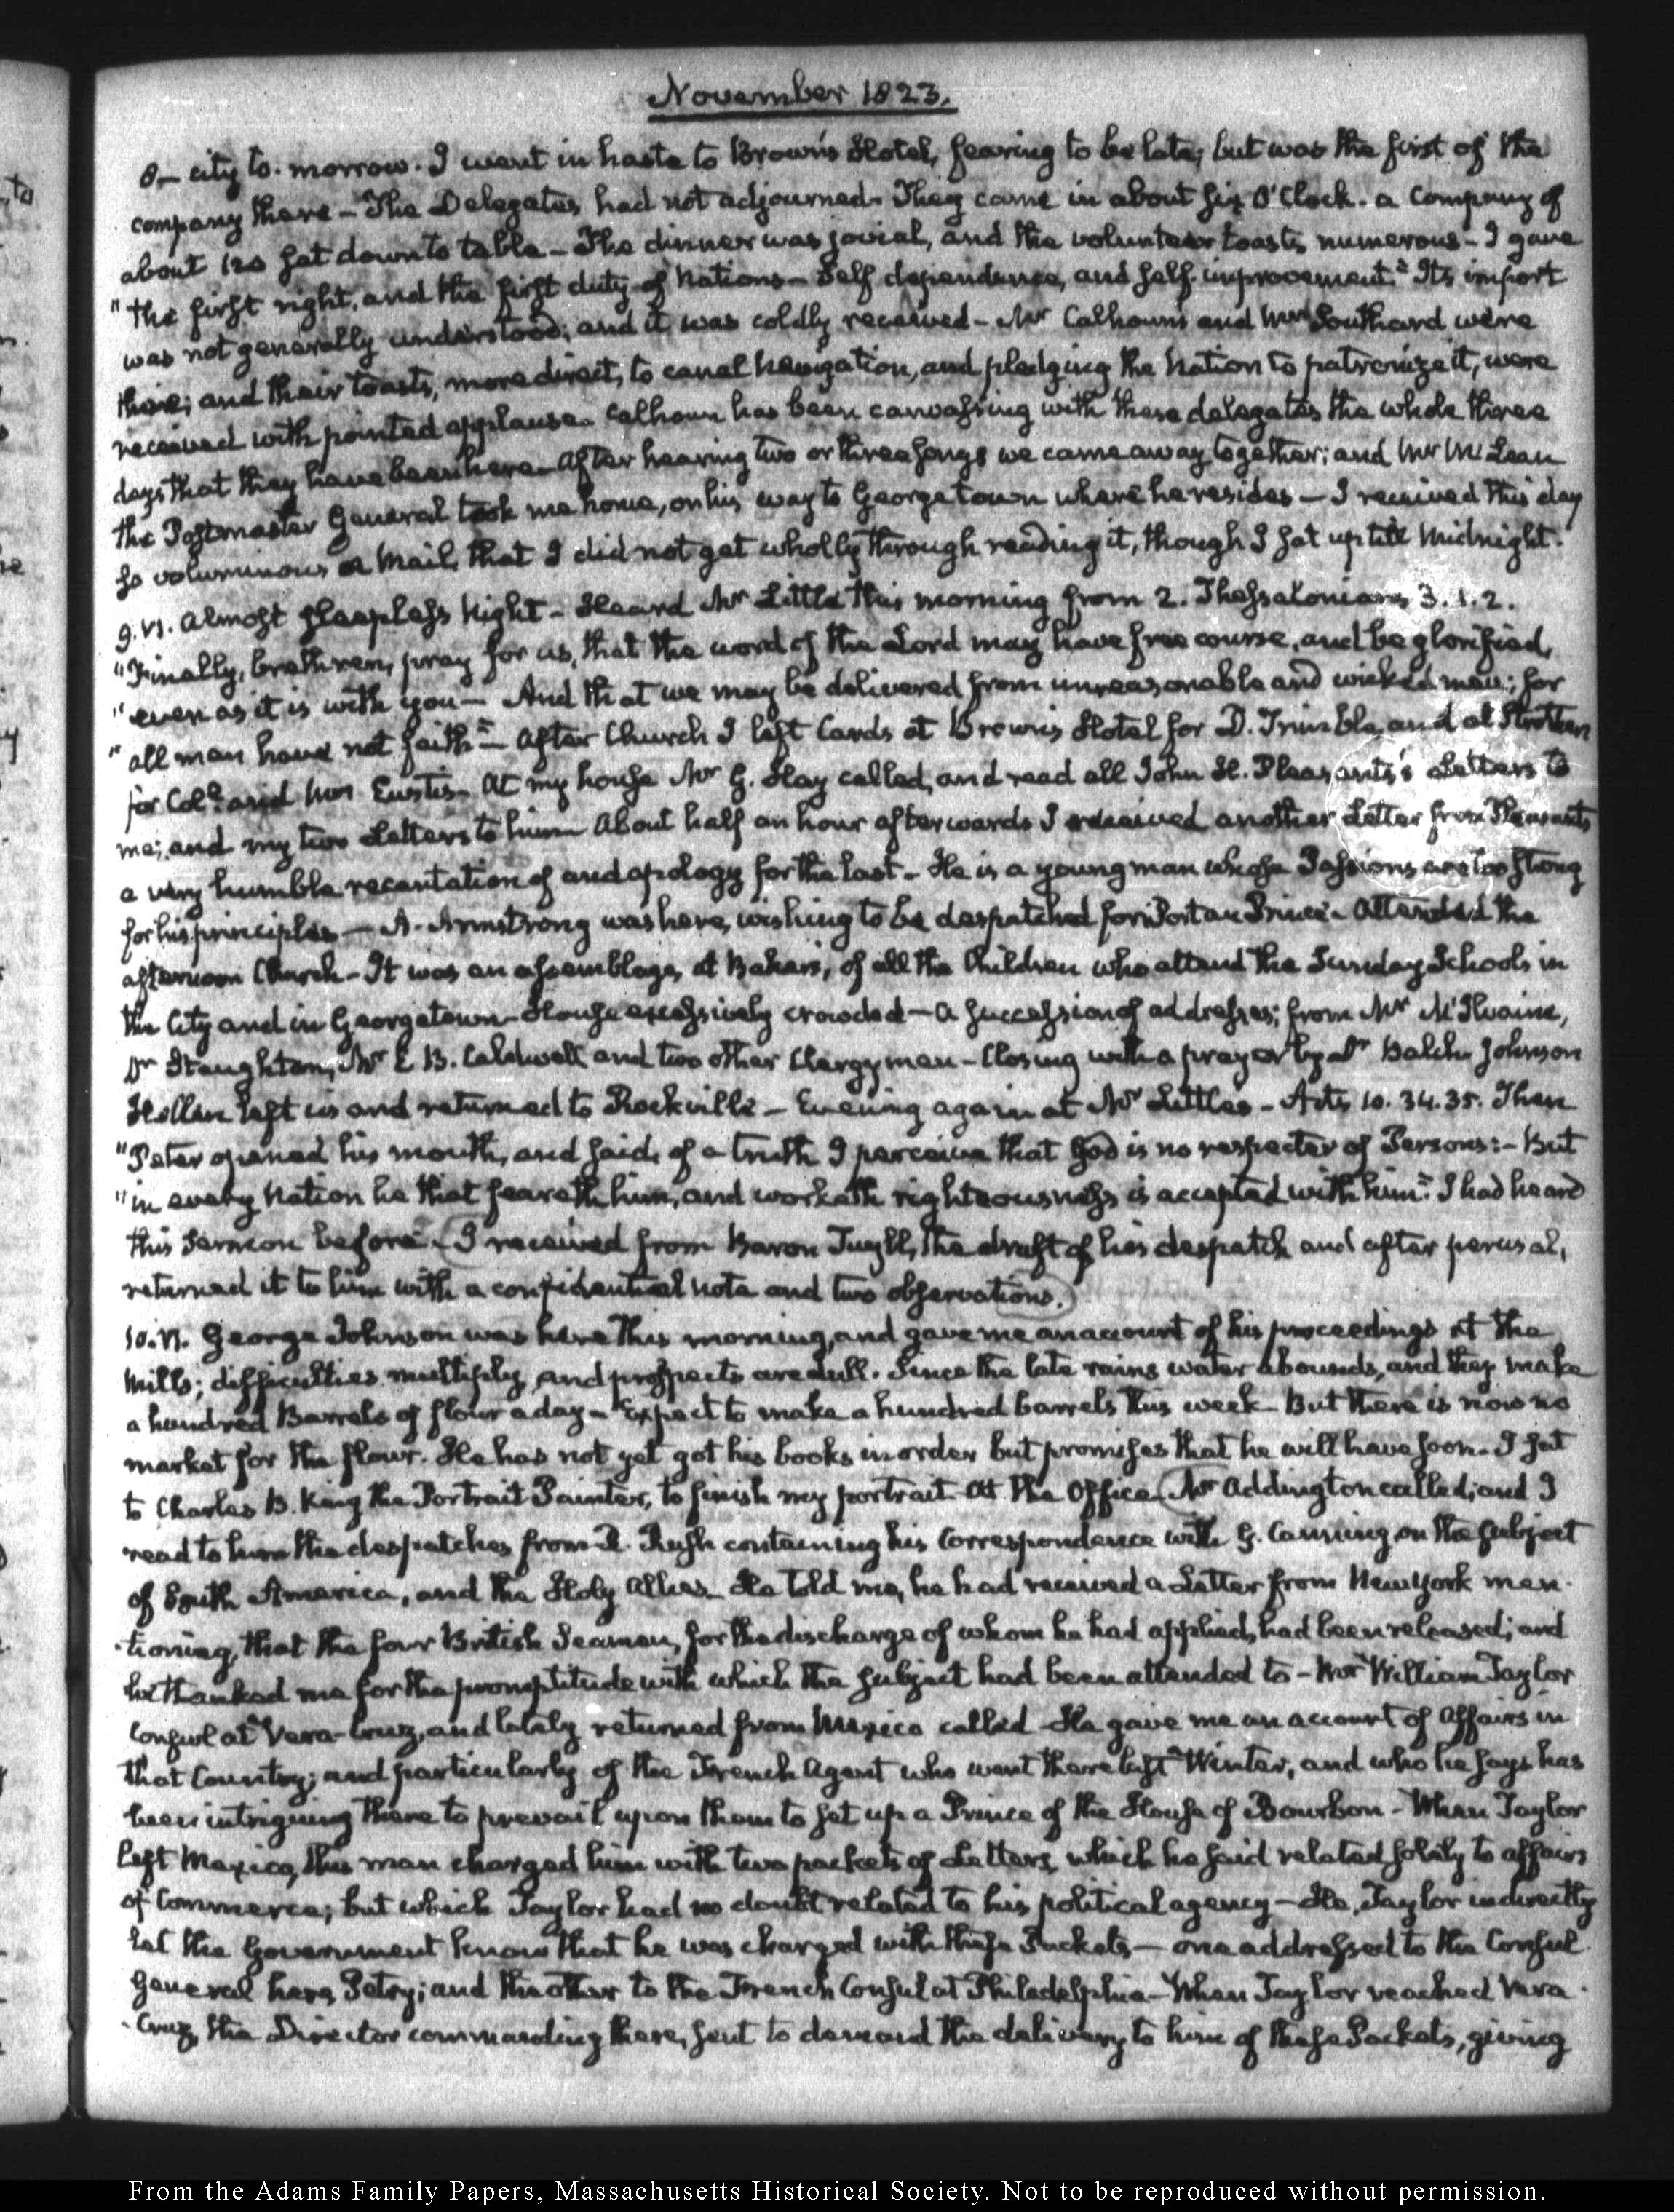 November 1823.
8— city to-morrow. I went in haste to Brown's Hotel, fearing to be late; but was the first of the
company there — The Delegates had not adjourned. They came in about six O'Clock. a Company of
about 120 sat down to table — The dinner was jovial, and the volunteer toasts numerous — I gave
"the first right, and the first duty of Nations — Self dependence, and self-improvement." Its import
was not generally understood; and it was coldly received — Mr Calhoun and Mr Southard were
there; and their toasts, more direct, to canal Navigation, and pledging the Nation to patronize it, were
received with pointed applause. Calhoun has been canvassing with these delegates the whole three
days that they have been here. After hearing two or three songs we came away together; and Mr McLean
the Postmaster General took me home, on his way to Georgetown where he resides — I received this day
so voluminous a Mail, that I did not get wholly through reading it, though I sat up till Midnight.
9. VI. Almost sleepless Night — Heard Mr Little this morning from 2. Thessalonians 3. 1. 2.
"Finally, brethren, pray for us, that the word of the Lord may have free course, and be glorified,
"even as it is with you — And that we may be delivered from unreasonable and wicked men; for
"all men have not faith" — After Church I left Cards at Brown's Hotel for D. Trimble, and at
for Coll. and Mrs Eustis. At my house Mr G. Hay called, and read all John H. Pleasants's Letters to
me; and my two Letters to him. About half an hour afterwards I received another Letter from Pleasants
a very humble recantation of and apology for the last. He is a young man whose Passions are too strong
for his principles — A. Armstrong was here, wishing to be despatched for Port au Prince. Attended the
afternoon Church — It was an assemblage, at Baker's, of all the Children who attend the Sunday Schools in
the City and in Georgetown — House excessively crowded — a succession of addresses; from Mr McIlvaine,
Dr Staughton, Mr E. B. Caldwell and two other Clergymen — Closing with a prayer by Dr Balch. Johnson
Hellen left us and returned to Rockville — Evening again at Mr Little's — Acts 10. 34. 35. Then
"Peter opened his mouth, and said, of a truth I perceive that God is no respecter of Persons: — But
"in every Nation he that feareth him, and worketh righteousness is accepted with him." I had heard
this Sermon before. I received from Baron Tuyll, the draft of his despatch and after perusal,
returned it to him with a confidential note and two observations.
10. VI. George Johnson was here this morning, and gave me an account of his proceedings at the
Mills; difficulties multiply and prospects are dull. Since the late rains water abounds, and they make
a hundred Barrels of flour a day — Expect to make a hundred barrels this week. But there is now no
market for the flour. He has not yet got his books in order but promises that he will have soon. I sat
to Charles B. King the Portrait Painter, to finish my portrait. At the Office Mr Addington called; and I
read to him the despatches from R. Rush containing his Correspondence with G. Canning on the subject
of South America, and the Holy Allies. He told me, he had received a Letter from New York men-
-tioning, that the four British Seamen, for the discharge of whom he had applied, had been released; and
he thanked me for the promptitude with which the subject had been attended to — Mr William Taylor
Consul at Vera-Cruz, and lately returned from Mexico called. He gave me an account of Affairs in
that Country; and particularly of the French Agent who went there last Winter, and who he says has
been intriguing there to prevail upon them to set up a Prince of the House of Bourbon — When Taylor
left Mexico, this man charged him with two packets of Letters, which he said related solely to affairs
of Commerce; but which Taylor had no doubt related to his political agency — He, Taylor indirectly
let the Government know that he was charged with these Packets — one addressed to the Consul
General here, Petry; and the other to the French Consul at Philadelphia — When Taylor reached Vera-
-Cruz, the Director commanding there, sent to demand the delivery to him of these Packets, giving
From the Adams Family Papers, Massachusetts Historical Society. Not to be reproduced without permission.